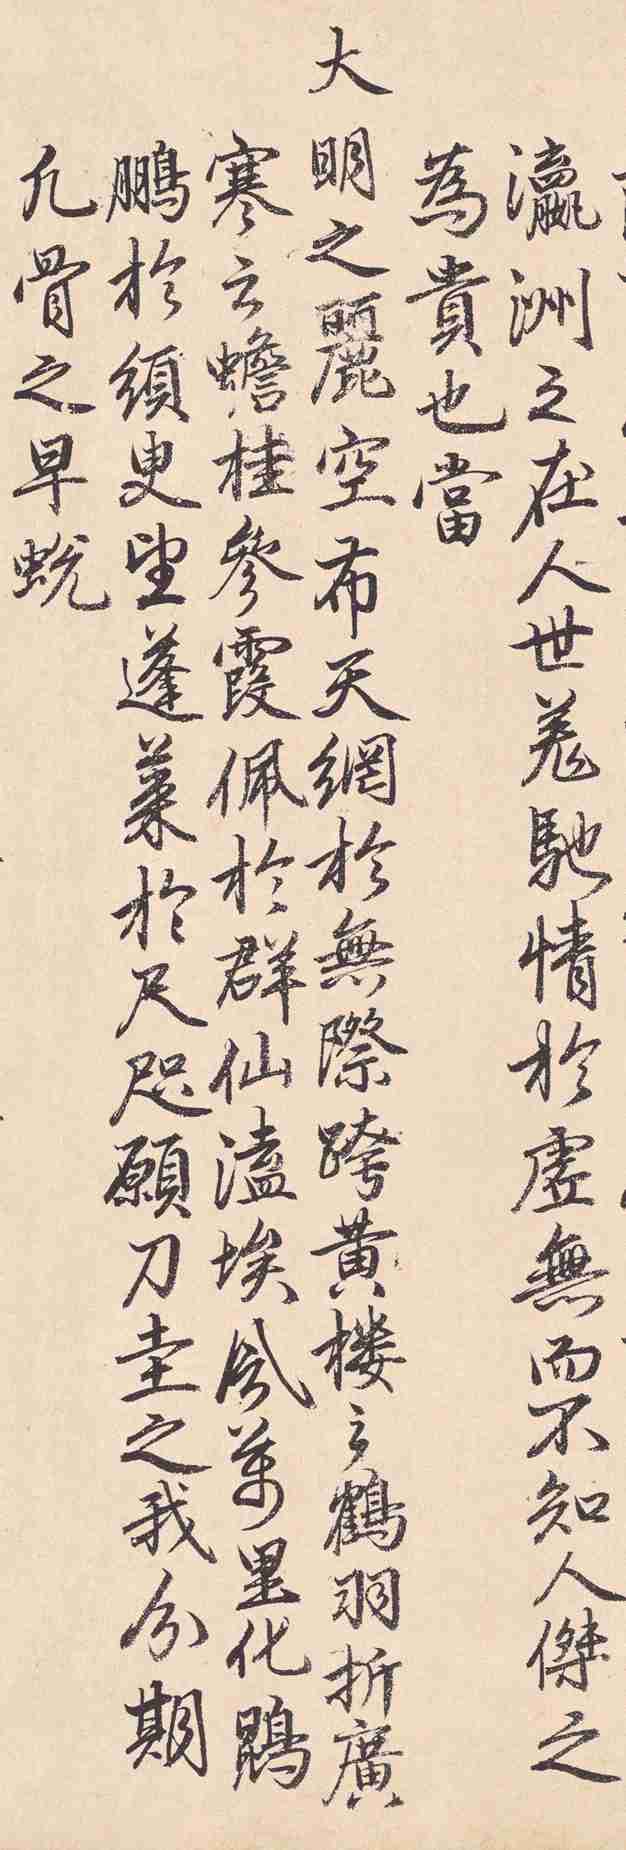 瀛洲之在人世羌馳情於虛無而不知人傑之
為貴也當
大明之麗空布天網於無際跨黃樓之鶴羽折廣
寒之蟾桂參霞佩於群仙溘埃風萬里化鵾
鵬於須臾望蓬萊於尺咫願刀圭之我分期
凡骨之早蛻